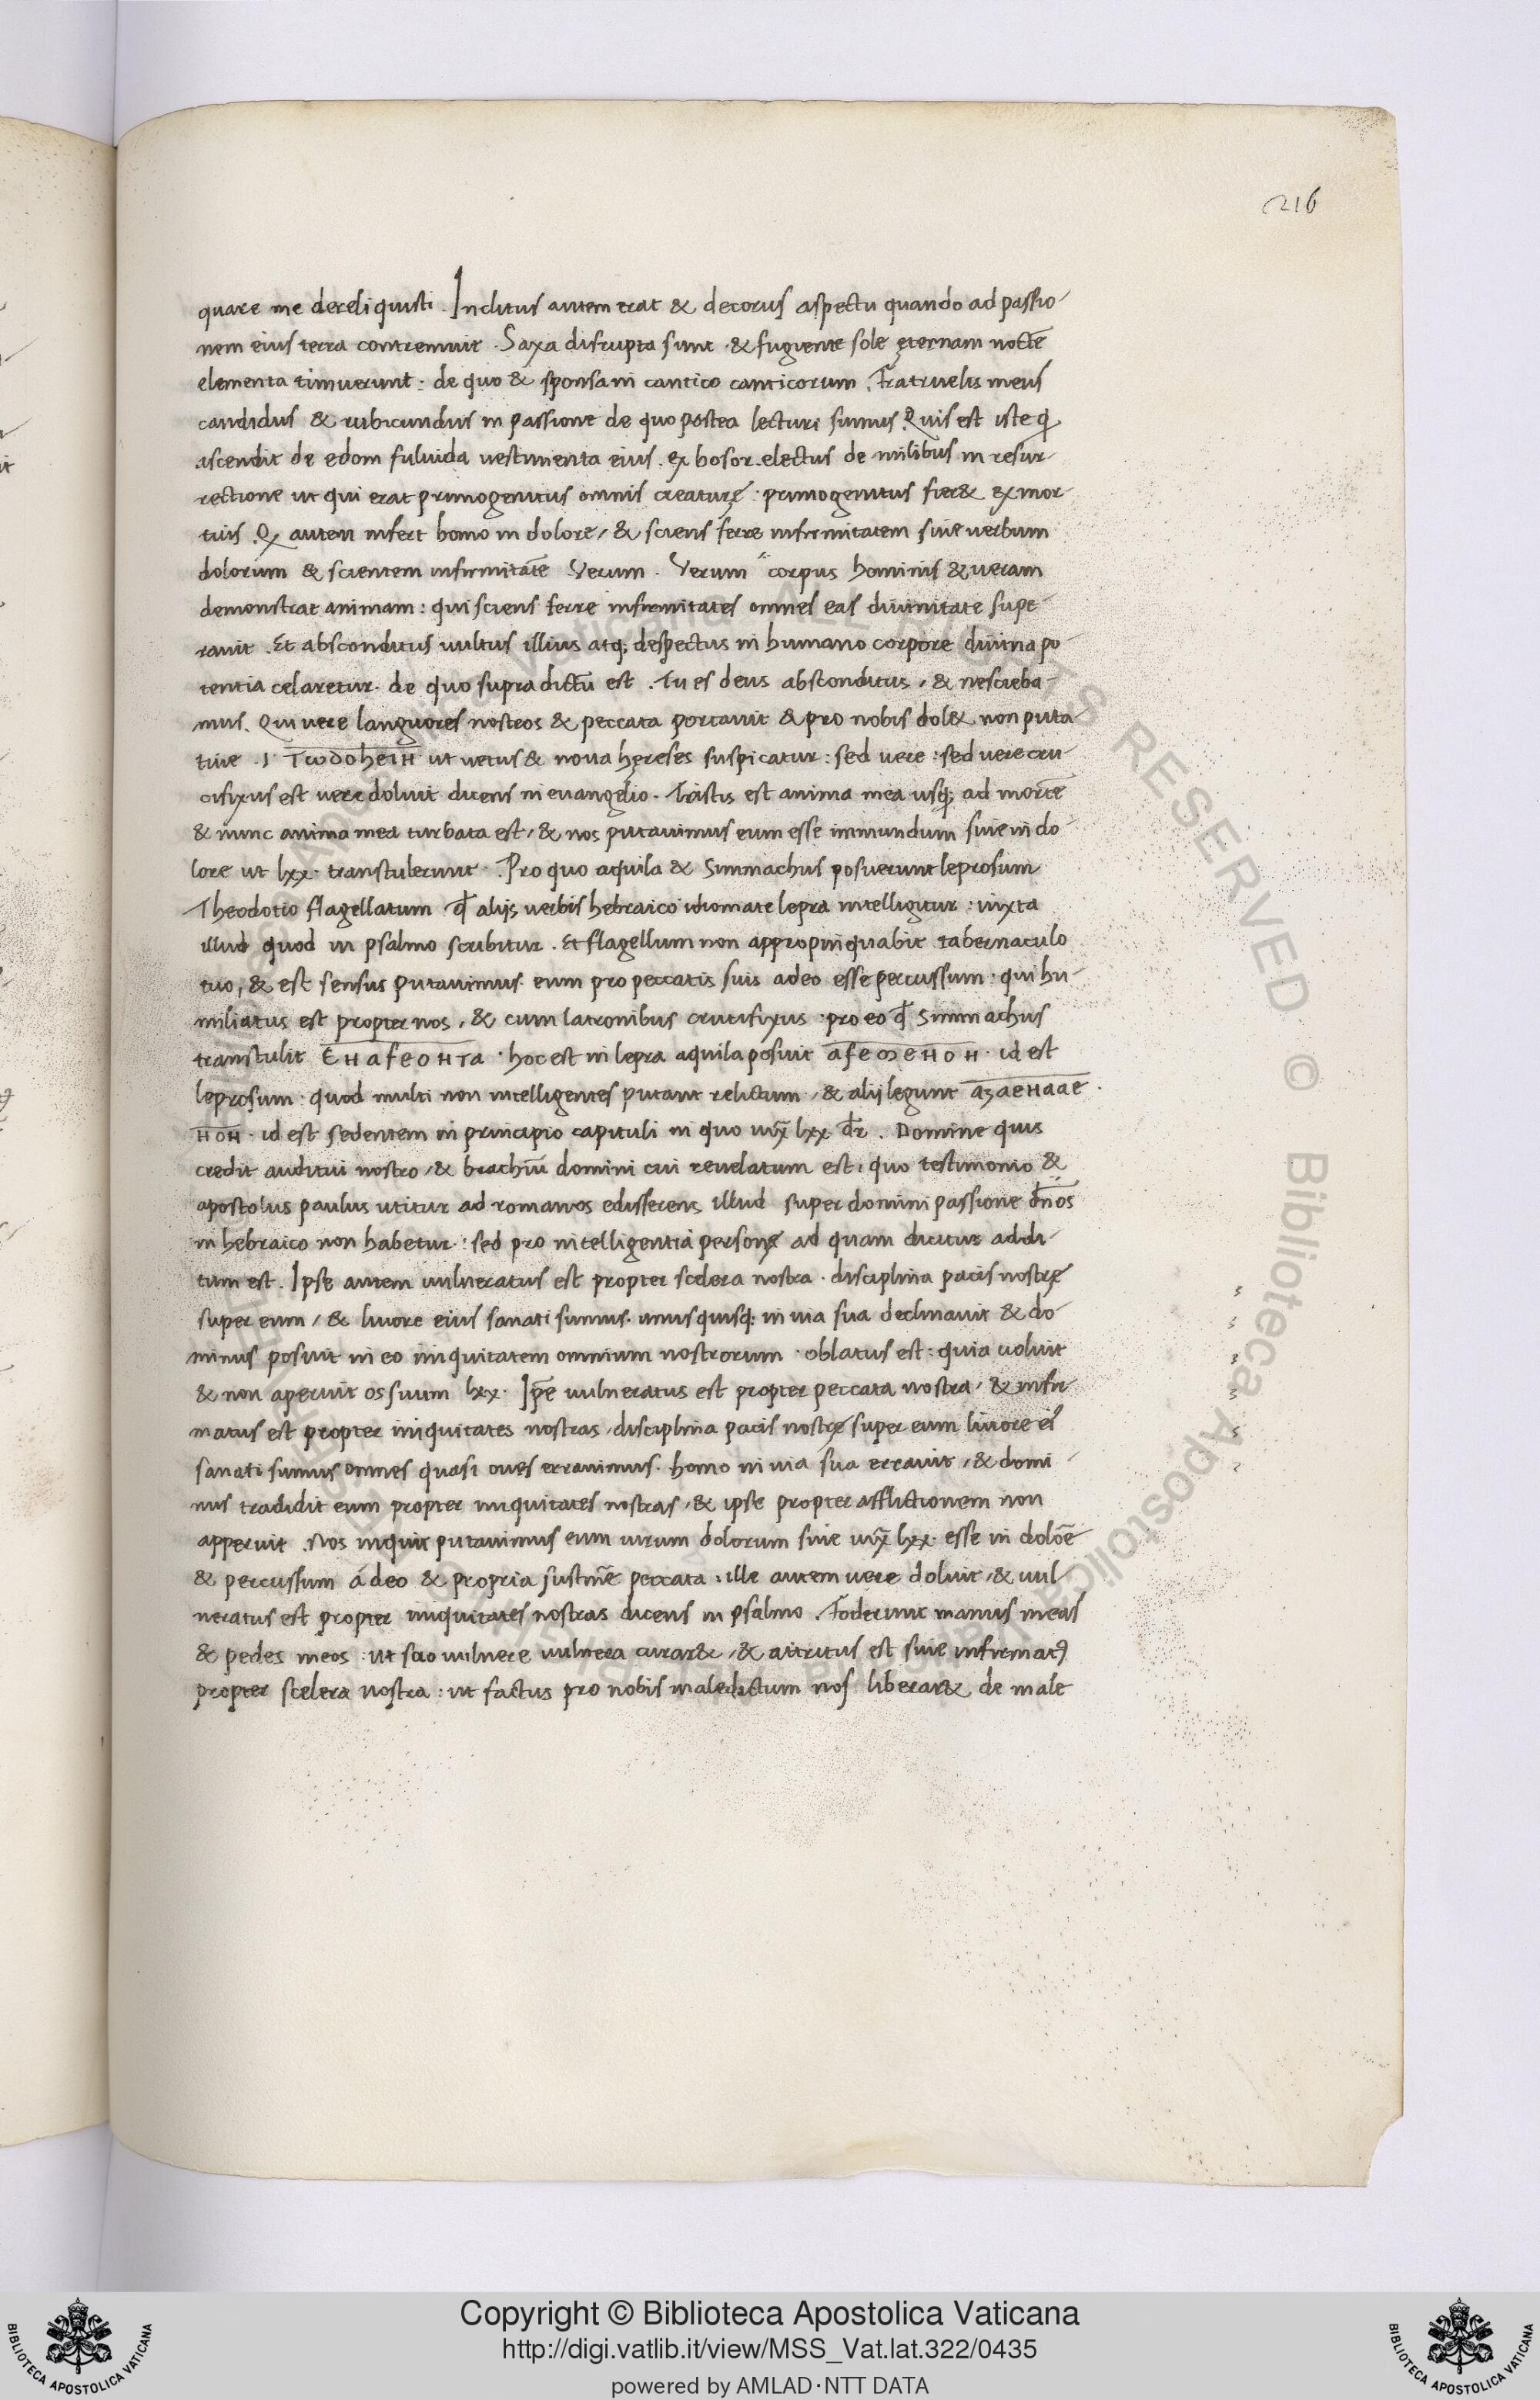 216
quare me dereliquisti. Inclitus autem erat & decorus aspectu quando ad passio-
nem eius terra contremuit. Saxa disrupta sunt. & fugiente sole ęternam noctē
elementa timuerunt: de quo & sponsa in cantico canticorum. Fratruelis meus
candidus & rubicundus in passione de quo postea lecturi sumus. Quis est iste q
ascendit de edom fuluida uestimenta eius. ex bosor. electus de milibus in resur-
rectione ut qui erat primogenitus omnis creaturę: primogenitus fier& ex mor-
tuis. Q autem infert homo in dolore, & sciens ferre infirmitatem siue uerbum
dolorum & scientem infirmitatē Verum. Verum corpus hominis & ueram
demonstrat animam: qui sciens ferre infirmitates omnes eas diuinitate supe-
rauit. Et absconditus uultus illius atq; despectus in humano corpore diuina po-
tentia celaretur. de quo supra dictū est. Tu es deus absconditus, & nescieba-
mus. Qui uere languores nostros & peccata portauit & pro nobis dol& non puta-
tiue. ı Τωδοhειн ut uetus & noua hęreses suspicatur: sed uere: sed uere cru-
cifixus est uere doluit dicens in euangelio. Tristis est anima mea usq; ad mortē
& nunc anima mea turbata est, & nos putauimus eum esse immundum siue in do-
lore ut lxx. transtulerunt. Pro quo aquila & Simmachus posuerunt leprosum
Theodotio flagellatum qđ alijs uerbis hebraico idiomate lepra intelligitur: iuxta
illud quod in psalmo scribitur. Et flagellum non appropinquabit tabernaculo
tuo, & est sensus putauimus eum pro peccatis suis adeo esse percussum. qui hu-
miliatus est propter nos, & cum latronibus crucifixus. pro eo qđ Simmachus
transtulit Єнafeoнтa. hoc est in lepra aquila posuit afeωeнoн. id est
leprosum. quod multi non intelligentes putant relictum, & alij legunt aзaeнaae.
нoн. id est sedentem in principio capituli in quo iux̄ lxx dr̄. Domine quis
credit auditui nostro, & brachiū domini cui reuelatum est, quo testimonio &
apostolus paulus utitur ad romanos edisserens illud super domini passione dn̄os
in hebraico non habetur: sed pro intelligentia personę ad quam dicitur addi-
tum est. Ipse autem uulneratus est propter scelera nostra. disciplina pacis nostrę
super eum, & liuore eius sanati sumus. unusquisq; in uia sua declinauit & do-
minus posuit in eo iniquitatem omnium nostrorum. oblatus est: quia uoluit
& non aperuit os suum lxx. Ip̄e uulneratus est propter peccata nostra, & infir
matus est propter iniquitates nostras, disciplina pacis nostrę super eum liuore eiꝰ
sanati sumus omnes quasi oues errauimus. homo in uia sua errauit, & domi-
nus tradidit eum propter iniquitates nostras, & ipse propter afflictionem non
apperuit. Nos inquit putauimus eum uirum dolorum siue iux̄ lxx. esse in dolōe
& percussum á deo & propria sustinē peccata: ille autem uere doluit, & uul-
neratus est propter iniquitates nostras dicens in psalmo. Foderunt manus meas
& pedes meos: ut suo uulnere uulnera curar&, & attritus est siue infirmatꝰ
propter scelera nostra: ut factus pro nobis maledictum nos liberar& de male
Copyright © Biblioteca Apostolica Vaticana
http://digi.vatlib.it/view/MSS_Vat.lat.322/0435
powered by AMLAD·NTT DATA